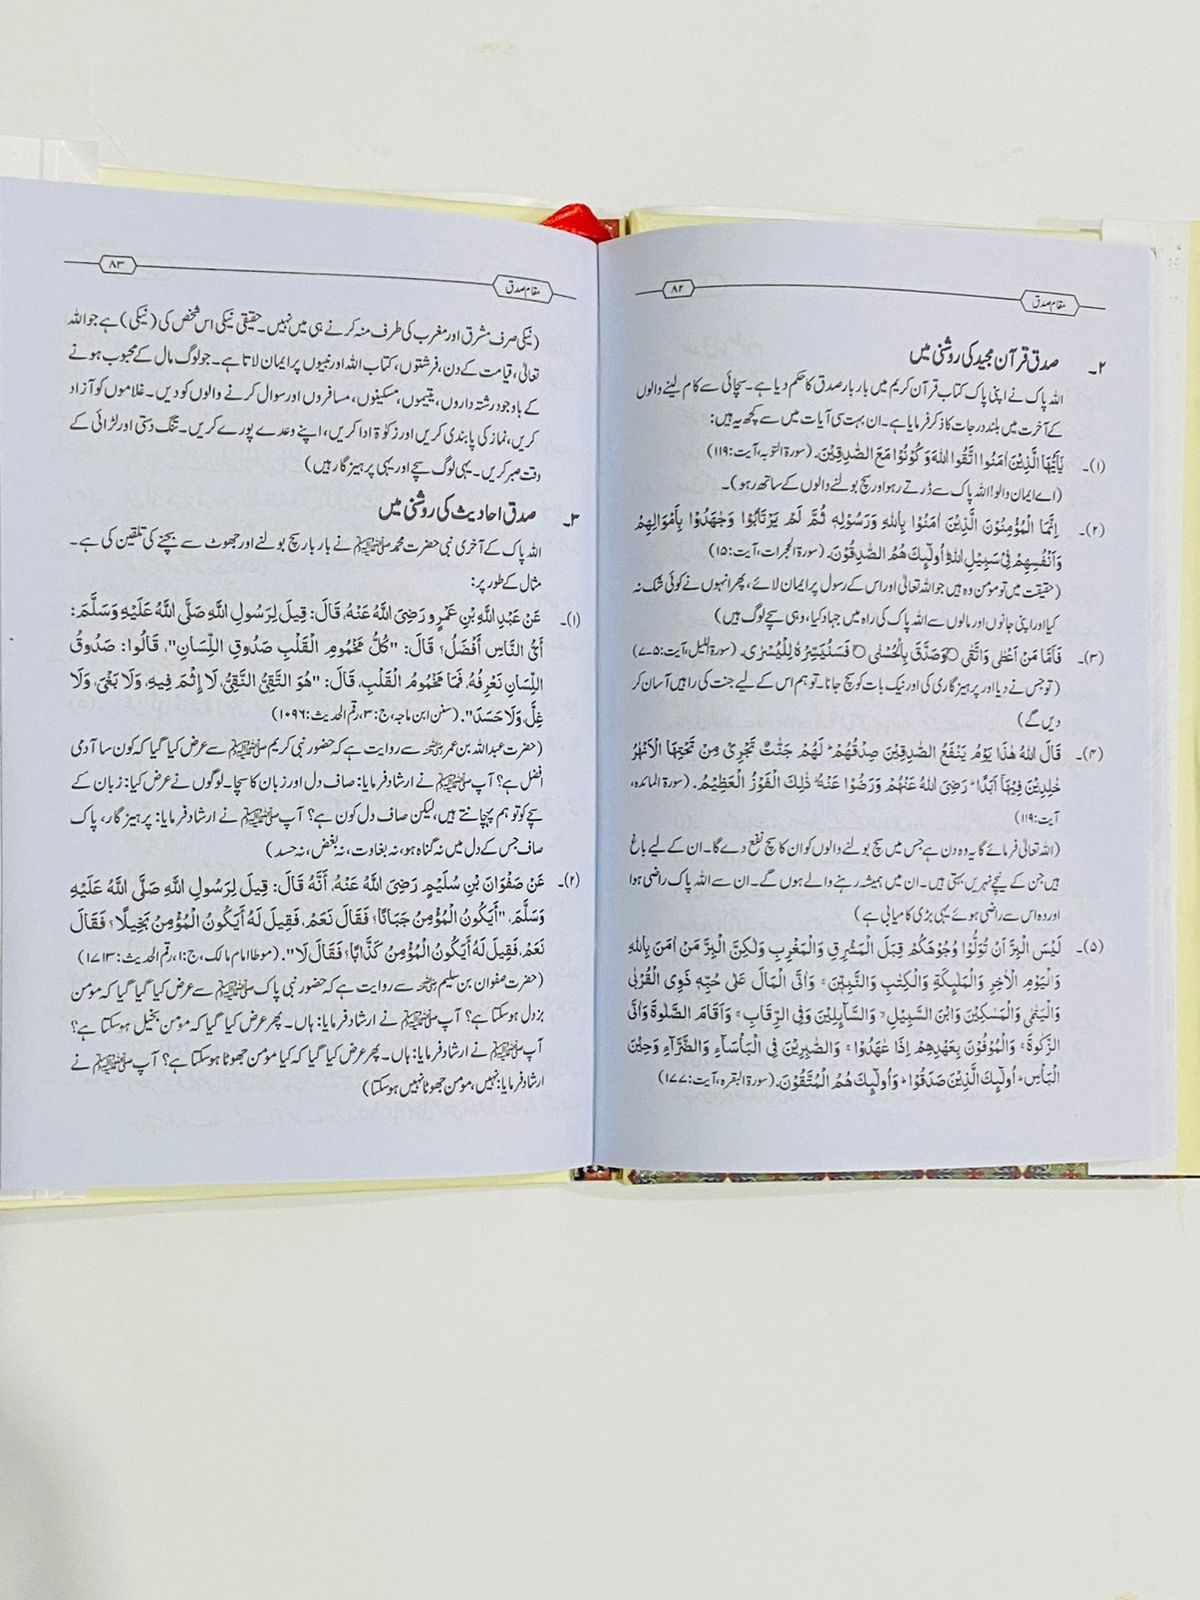 مقام صدق
۸۲
۲۔ صدق قرآن مجید کی روشنی میں
اللہ پاک نے اپنی پاک کتاب قرآن کریم میں بار بار صدق کا حکم دیا ہے۔ سچائی سے کام لینے والوں
کے آخرت میں بلند درجات کا ذکر فرمایا ہے۔ ان بہت سی آیات میں سے کچھ یہ ہیں:
(۱)۔ یٰٓاَیُّهَا الَّذِیْنَ اٰمَنُوا اتَّقُوا اللّٰهَ وَ کُوْنُوْا مَعَ الصّٰدِقِیْنَ۔ (سورۃ التوبہ، آیت:۱۱۹)
(اے ایمان والو! اللہ پاک سے ڈرتے رہو اور سچ بولنے والوں کے ساتھ رہو)۔
(۲)۔ اِنَّمَا الْمُؤْمِنُوْنَ الَّذِیْنَ اٰمَنُوْا بِاللّٰهِ وَرَسُوْلِهٖ ثُمَّ لَمْ یَرْتَابُوْا وَجٰهَدُوْا بِاَمْوَالِهِمْ
وَاَنْفُسِهِمْ فِیْ سَبِیْلِ اللّٰهِ اُولٰٓئِكَ هُمُ الصّٰدِقُوْنَ۔ (سورۃ الحجرات، آیت:۱۵)
(حقیقت میں تو مومن وہ ہیں جو اللہ تعالیٰ اور اس کے رسول پر ایمان لائے، پھر انہوں نے کوئی شک نہ
کیا اور اپنی جانوں اور مالوں سے اللہ پاک کی راہ میں جہاد کیا، وہی سچے لوگ ہیں)
(۳)۔ فَاَمَّا مَنْ اَعْطٰی وَاتَّقٰی ○ وَصَدَّقَ بِالْحُسْنٰی ○ فَسَنُیَسِّرُهٗ لِلْیُسْرٰی۔ (سورۃ اللیل، آیت:۵۔۷)
(تو جس نے دیا اور پرہیز گاری کی اور نیک بات کو سچ جانا۔ تو ہم اس کے لیے جنت کی راہیں آسان کر
دیں گے)
(۴)۔ قَالَ اللّٰهُ هٰذَا یَوْمُ یَنْفَعُ الصّٰدِقِیْنَ صِدْقُهُمْ ؕ لَهُمْ جَنّٰتٌ تَجْرِیْ مِنْ تَحْتِهَا الْاَنْهٰرُ
خٰلِدِیْنَ فِیْهَاۤ اَبَدًا ؕ رَضِیَ اللّٰهُ عَنْهُمْ وَرَضُوْا عَنْهُ ؕ ذٰلِكَ الْفَوْزُ الْعَظِیْمُ۔ (سورۃ المائدہ،
آیت:۱۱۹)
(اللہ تعالیٰ فرمائے گا یہ وہ دن ہے جس میں سچ بولنے والوں کو ان کا سچ نفع دے گا۔ ان کے لیے باغ
ہیں جن کے نیچے نہریں بہتی ہیں۔ ان میں ہمیشہ رہنے والے ہوں گے۔ ان سے اللہ پاک راضی ہوا
اور وہ اس سے راضی ہوئے یہی بڑی کامیابی ہے)
(۵)۔ لَیْسَ الْبِرَّ اَنْ تُوَلُّوْا وُجُوْهَكُمْ قِبَلَ الْمَشْرِقِ وَالْمَغْرِبِ وَلٰکِنَّ الْبِرَّ مَنْ اٰمَنَ بِاللّٰهِ
وَالْیَوْمِ الْاٰخِرِ وَالْمَلٰٓئِكَةِ وَالْكِتٰبِ وَالنَّبِیّٖنَ ۚ وَاٰتَی الْمَالَ عَلٰی حُبِّهٖ ذَوِی الْقُرْبٰی
وَالْیَتٰمٰی وَالْمَسٰكِیْنَ وَابْنَ السَّبِیْلِ ۙ وَالسَّآئِلِیْنَ وَفِی الرِّقَابِ ۚ وَاَقَامَ الصَّلٰوةَ وَاٰتَی
الزَّكٰوةَ ۚ وَالْمُوْفُوْنَ بِعَهْدِهِمْ اِذَا عٰهَدُوْا ۚ وَالصّٰبِرِیْنَ فِی الْبَاْسَآءِ وَالضَّرَّآءِ وَحِیْنَ
الْبَاْسِ ؕ اُولٰٓئِكَ الَّذِیْنَ صَدَقُوْا ؕ وَاُولٰٓئِكَ هُمُ الْمُتَّقُوْنَ۔ (سورۃ البقرہ، آیت:۱۷۷)
مقام صدق
۸۳
(نیکی صرف مشرق اور مغرب کی طرف منہ کرنے ہی میں نہیں۔ حقیقی نیکی اس شخص کی (نیکی) ہے جو اللہ
تعالیٰ، قیامت کے دن، فرشتوں، کتاب اللہ اور نبیوں پر ایمان لاتا ہے۔ جو لوگ مال کے محبوب ہونے
کے باوجود رشتہ داروں، یتیموں، مسکینوں، مسافروں اور سوال کرنے والوں کو دیں۔ غلاموں کو آزاد
کریں، نماز کی پابندی کریں اور زکوٰۃ ادا کریں، اپنے وعدے پورے کریں۔ تنگ دستی اور لڑائی کے
وقت صبر کریں۔ یہی لوگ سچے اور یہی پرہیز گار ہیں)
۳۔ صدق احادیث کی روشنی میں
اللہ پاک کے آخری نبی حضرت محمد ﷺ نے بار بار سچ بولنے اور جھوٹ سے بچنے کی تلقین کی ہے۔
مثال کے طور پر:
(۱)۔ عَنْ عَبْدِ اللّٰهِ بْنِ عَمْرٍو رَضِیَ اللّٰهُ عَنْهُ، قَالَ: قِیْلَ لِرَسُوْلِ اللّٰهِ صَلَّی اللّٰهُ عَلَیْهِ وَسَلَّمَ:
أَیُّ النَّاسِ أَفْضَلُ؟ قَالَ: "كُلُّ مَخْمُوْمِ الْقَلْبِ صَدُوْقِ اللِّسَانِ"، قَالُوْا: صَدُوْقُ
اللِّسَانِ نَعْرِفُهُ، فَمَا مَخْمُوْمُ الْقَلْبِ، قَالَ: "هُوَ التَّقِیُّ النَّقِیُّ، لَا إِثْمَ فِیْهِ، وَلَا بَغْیَ، وَلَا
غِلَّ، وَلَا حَسَدَ"۔ (سنن ابن ماجہ، ج:۳، رقم الحدیث:۱۰۹۶)
(حضرت عبداللہ بن عمرؓ سے روایت ہے کہ حضور نبی کریم ﷺ سے عرض کیا گیا کہ کون سا آدمی
افضل ہے؟ آپ ﷺ نے ارشاد فرمایا: صاف دل اور زبان کا سچا۔ لوگوں نے عرض کیا: زبان کے
سچے کو تو ہم پہچانتے ہیں، لیکن صاف دل کون ہے؟ آپ ﷺ نے ارشاد فرمایا: پرہیز گار، پاک
صاف جس کے دل میں نہ گناہ ہو، نہ بغاوت، نہ بغض، نہ حسد)
(۲)۔ عَنْ صَفْوَانَ بْنِ سُلَیْمٍ رَضِیَ اللّٰهُ عَنْهُ، أَنَّهُ قَالَ: قِیْلَ لِرَسُوْلِ اللّٰهِ صَلَّی اللّٰهُ عَلَیْهِ
وَسَلَّمَ، "أَیَكُوْنُ الْمُؤْمِنُ جَبَانًا؟ فَقَالَ نَعَمْ، فَقِیْلَ لَهُ أَیَكُوْنُ الْمُؤْمِنُ بَخِیْلًا؟ فَقَالَ
نَعَمْ، فَقِیْلَ لَهُ أَیَكُوْنُ الْمُؤْمِنُ كَذَّابًا؟ فَقَالَ لَا"۔ (موطا امام مالک، ج:۱، رقم الحدیث:۱۷۱۳)
(حضرت صفوان بن سلیمؓ سے روایت ہے کہ حضور نبی پاک ﷺ سے عرض کیا گیا کہ مومن
بزدل ہو سکتا ہے؟ آپ ﷺ نے ارشاد فرمایا: ہاں۔ پھر عرض کیا گیا کہ مومن بخیل ہو سکتا ہے؟
آپ ﷺ نے ارشاد فرمایا: ہاں۔ پھر عرض کیا گیا کہ کیا مومن جھوٹا ہو سکتا ہے؟ آپ ﷺ نے
ارشاد فرمایا: نہیں، مومن جھوٹا نہیں ہو سکتا)